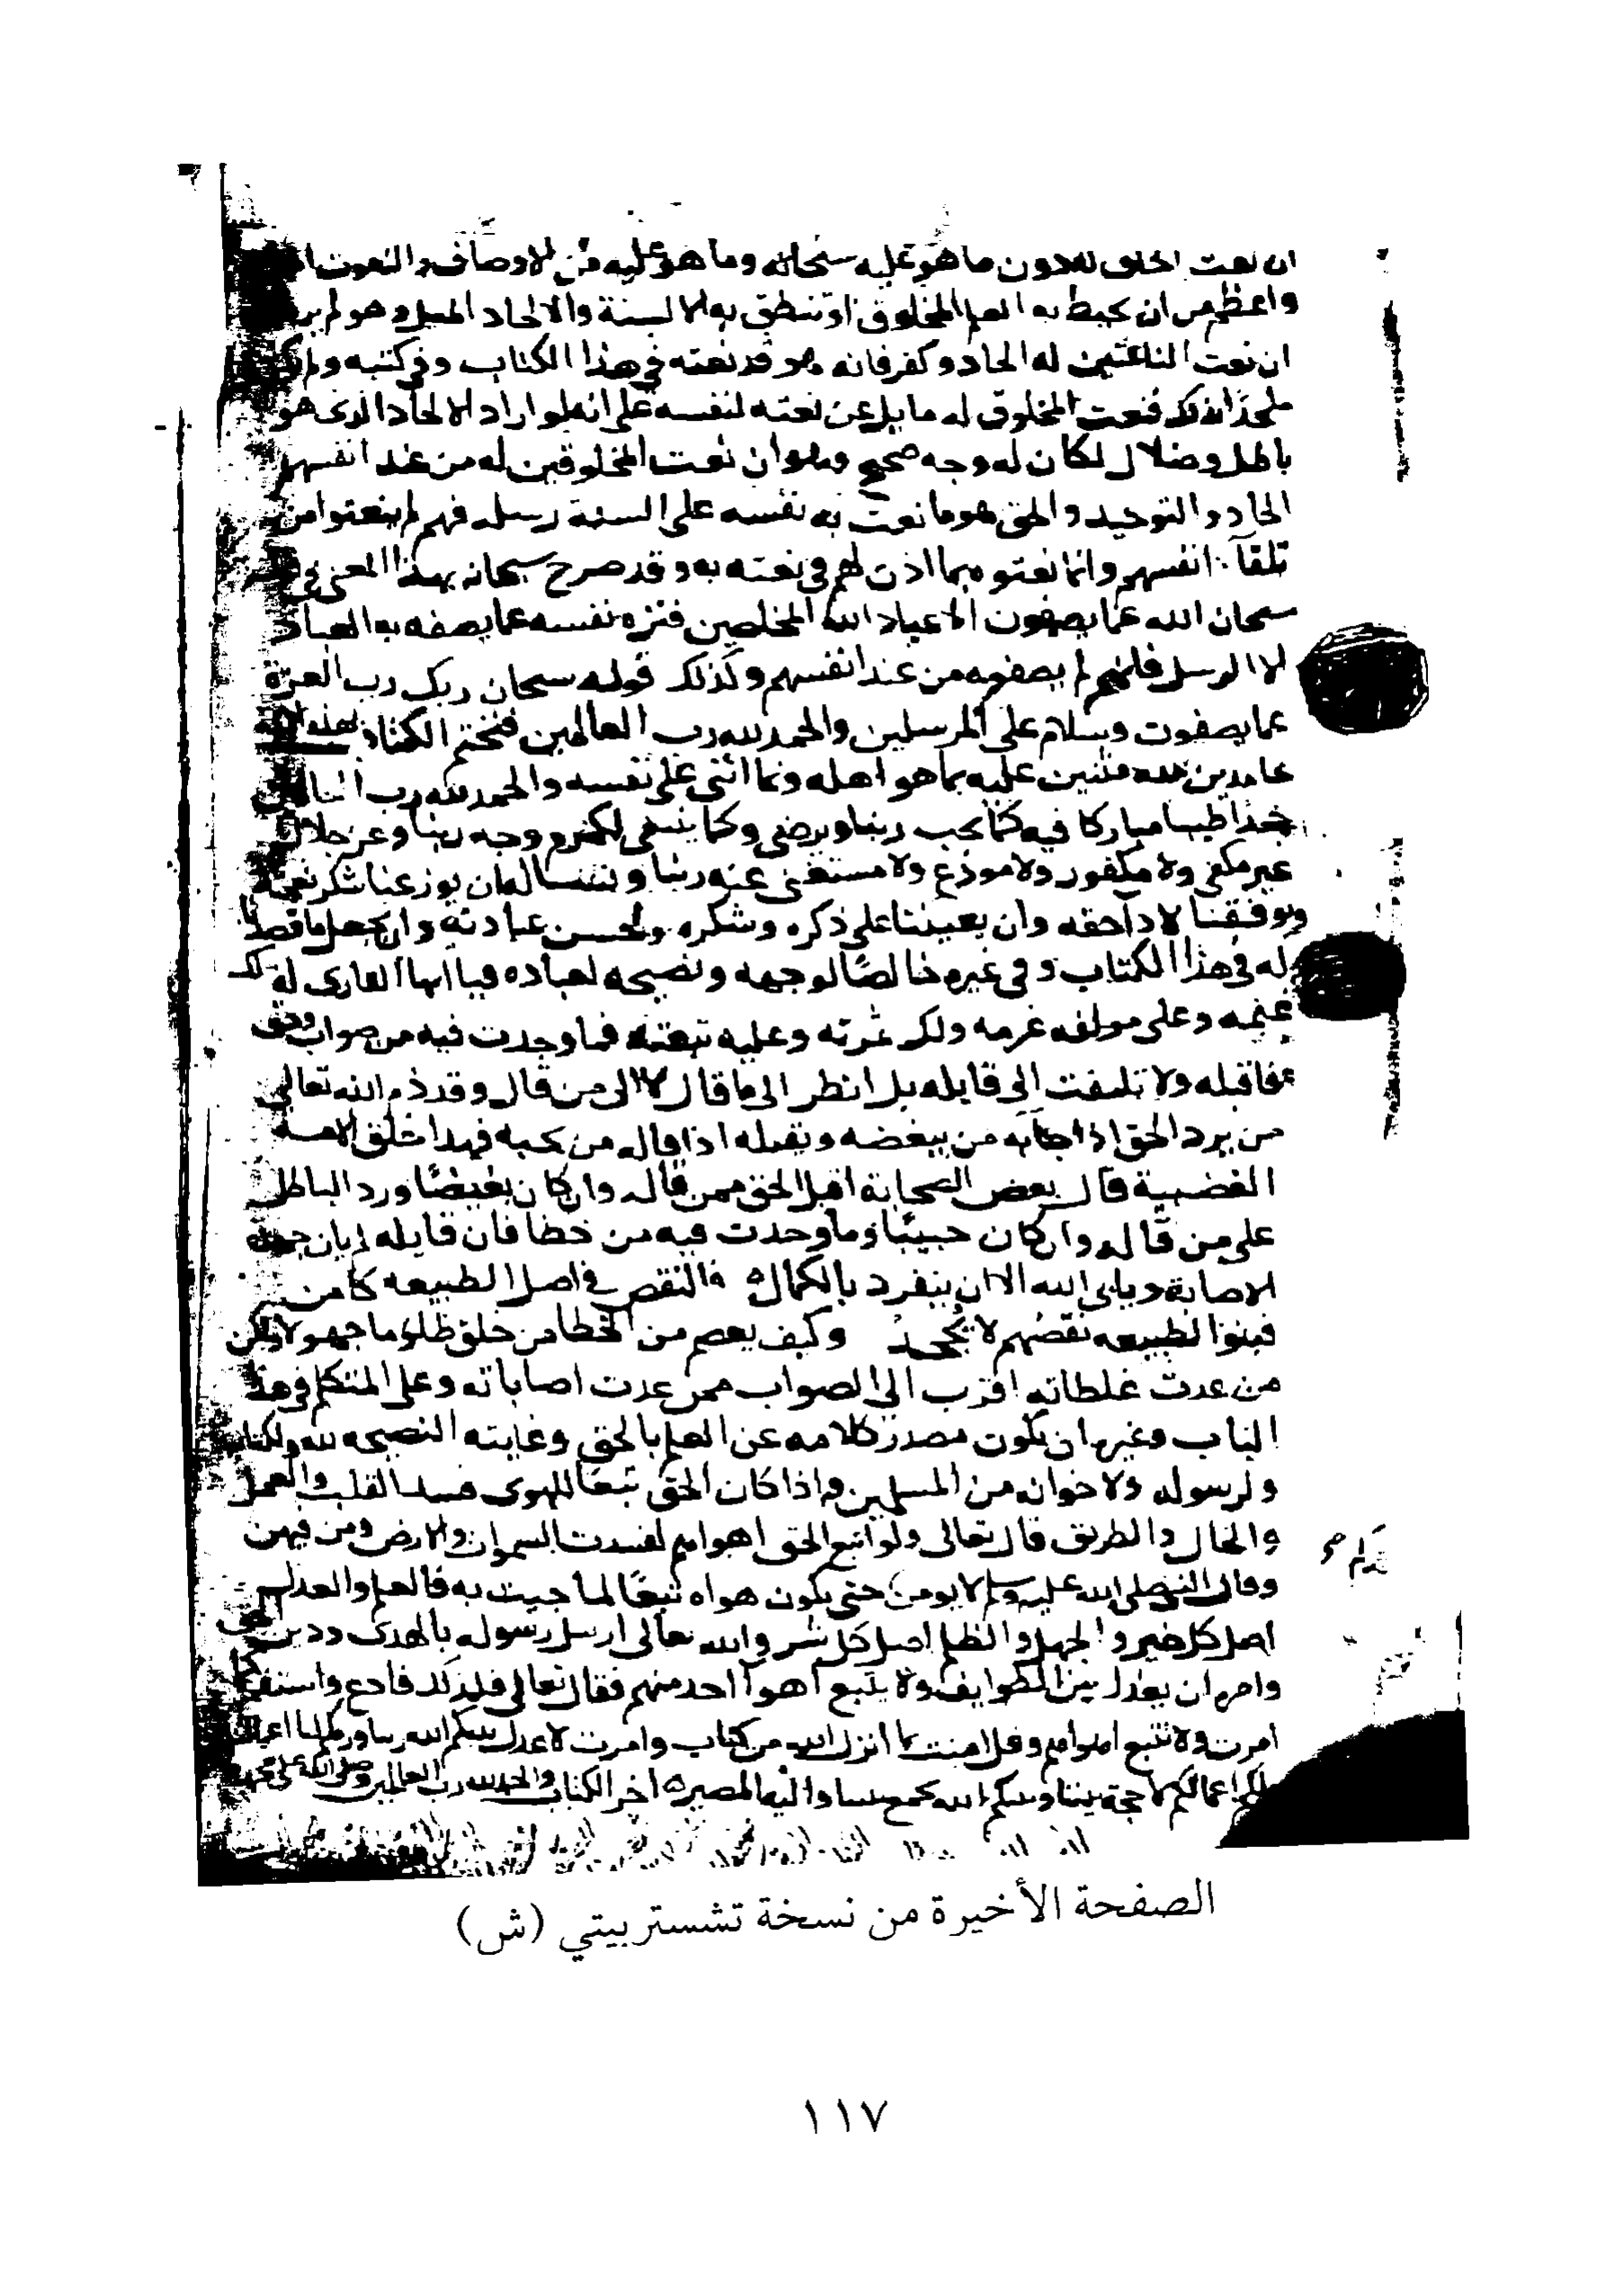 ان نعت الخلق له دون ما هو عليه سبحانه وما هو عليه من الاوصاف والنعوت
واعظم من ان يحيط به العلم المخلوق او تنطق به الالسنة والالحاد الميل وهو لم يرد
ان نعت الناعتين له الحاد وكفر فانه هو قد نعته في هذا الكتاب وفي كتبه ولم
ملحدا بذلك فنعت المخلوق له مايل عن نعته لنفسه على انه لو اراد الالحاد الذى هو
باطل وضلال لكان له وجه صحيح وهو ان نعت المخلوقين له من عند انفسهم
الحاد والتوحيد والحق هو ما نعت به نفسه على السنة رسله فهم لم ينعتوا من
تلقآء انفسهم وانما نعتوه بما اذن لهم في نعته به وقد صرح سبحانه بهذا المعنى في
سبحان الله عما يصفون الا عباد الله المخلصين فنزه نفسه عما يصفه به العباد
الا الرسل فانهم لم يصفوه من عند انفسهم وكذلك قوله سبحان ربك رب العزة
عما يصفون وسلام على المرسلين والحمد لله رب العالمين فنختم الكتاب بهذه
حامدين لله مثنين عليه بما هو اهله وبما اثنى على نفسه والحمد لله رب العالمين
حمدا طيبا مباركا فيه كما يحب ربنا ويرضى وكما ينبغى لكرم وجه ربنا وعز جلاله
غير مكفى ولا مكفور ولا مودع ولا مستغنى عنه ربنا ونسأله ان يوزعنا شكر نعمته
ويوفقنا لادآ حقه وان يعيننا على ذكره وشكره وحسن عبادته وان يجعل ما قصدنا
له في هذا الكتاب وفي غيره خالصا لوجهه ونصيحه لعباده فيا ايها القارى له لك
غنمه وعلى مولفه غرمه ولك ثمرته وعليه تبعته فما وجدت فيه من صواب وحق
فاقبله ولا تلتفت الى قايله بل انظر الى ما قال لا الى من قال وقد ذم الله تعالى
من يرد الحق اذا جآء به من يبغضه ويقبله اذا قاله من يحبه فهذا خلق الامة
الغضبية قال بعض الصحابة اقبل الحق ممن قاله وان كان بغيضا ورد الباطل
على من قاله وان كان حبيبا وما وجدت فيه من خطا فان قايله لم يال جهد
الاصابة ويابى الله الا ان ينفرد بالكمال ه فالنقص في اصل الطبيعه كامن
فبنوا الطبيعه نقصهم لا يجحد وكيف يعصم من الخطا من خلق ظلوما جهولا ولكن
من عدت غلطاته اقرب الى الصواب ممن عدت اصاباته وعلى المتكلم في هذا
الباب وغيره ان يكون مصدر كلامه عن العلم بالحق وغايته النصيحه لله ولكتابه
ولرسوله ولاخوانه من المسلمين واذا كان الحق تبعا للهوى فسد القلب والعمل
والحال والطريق قال تعالى ولو اتبع الحق اهواهم لفسدت السموات والارض ومن فيهن
وقال النبى صلى الله عليه وسلم لا يومن حتى يكون هواه تبعا لما جيت به فالعلم والعدل
اصل كل خير والجهل والظلم اصل كل شر والله تعالى ارسل رسوله بالهدى ودين الحق
وامره ان يعدل بين الطوايف ولا يتبع اهوآ احد منهم فقال تعالى فلذلك فادع واستقم كما
امرت ولا تتبع اهواهم وقل امنت بما انزل الله من كتاب وامرت لاعدل بينكم الله ربنا وربكم لنا اعمالنا
ولكم اعمالكم لا حجة بيننا وبينكم الله يجمع بيننا واليه المصير ه اخر الكتاب والحمد لله رب العالمين وصلى الله على محمد
الصفحة الأخيرة من نسخة تشستربيتي (ش)
١١٧